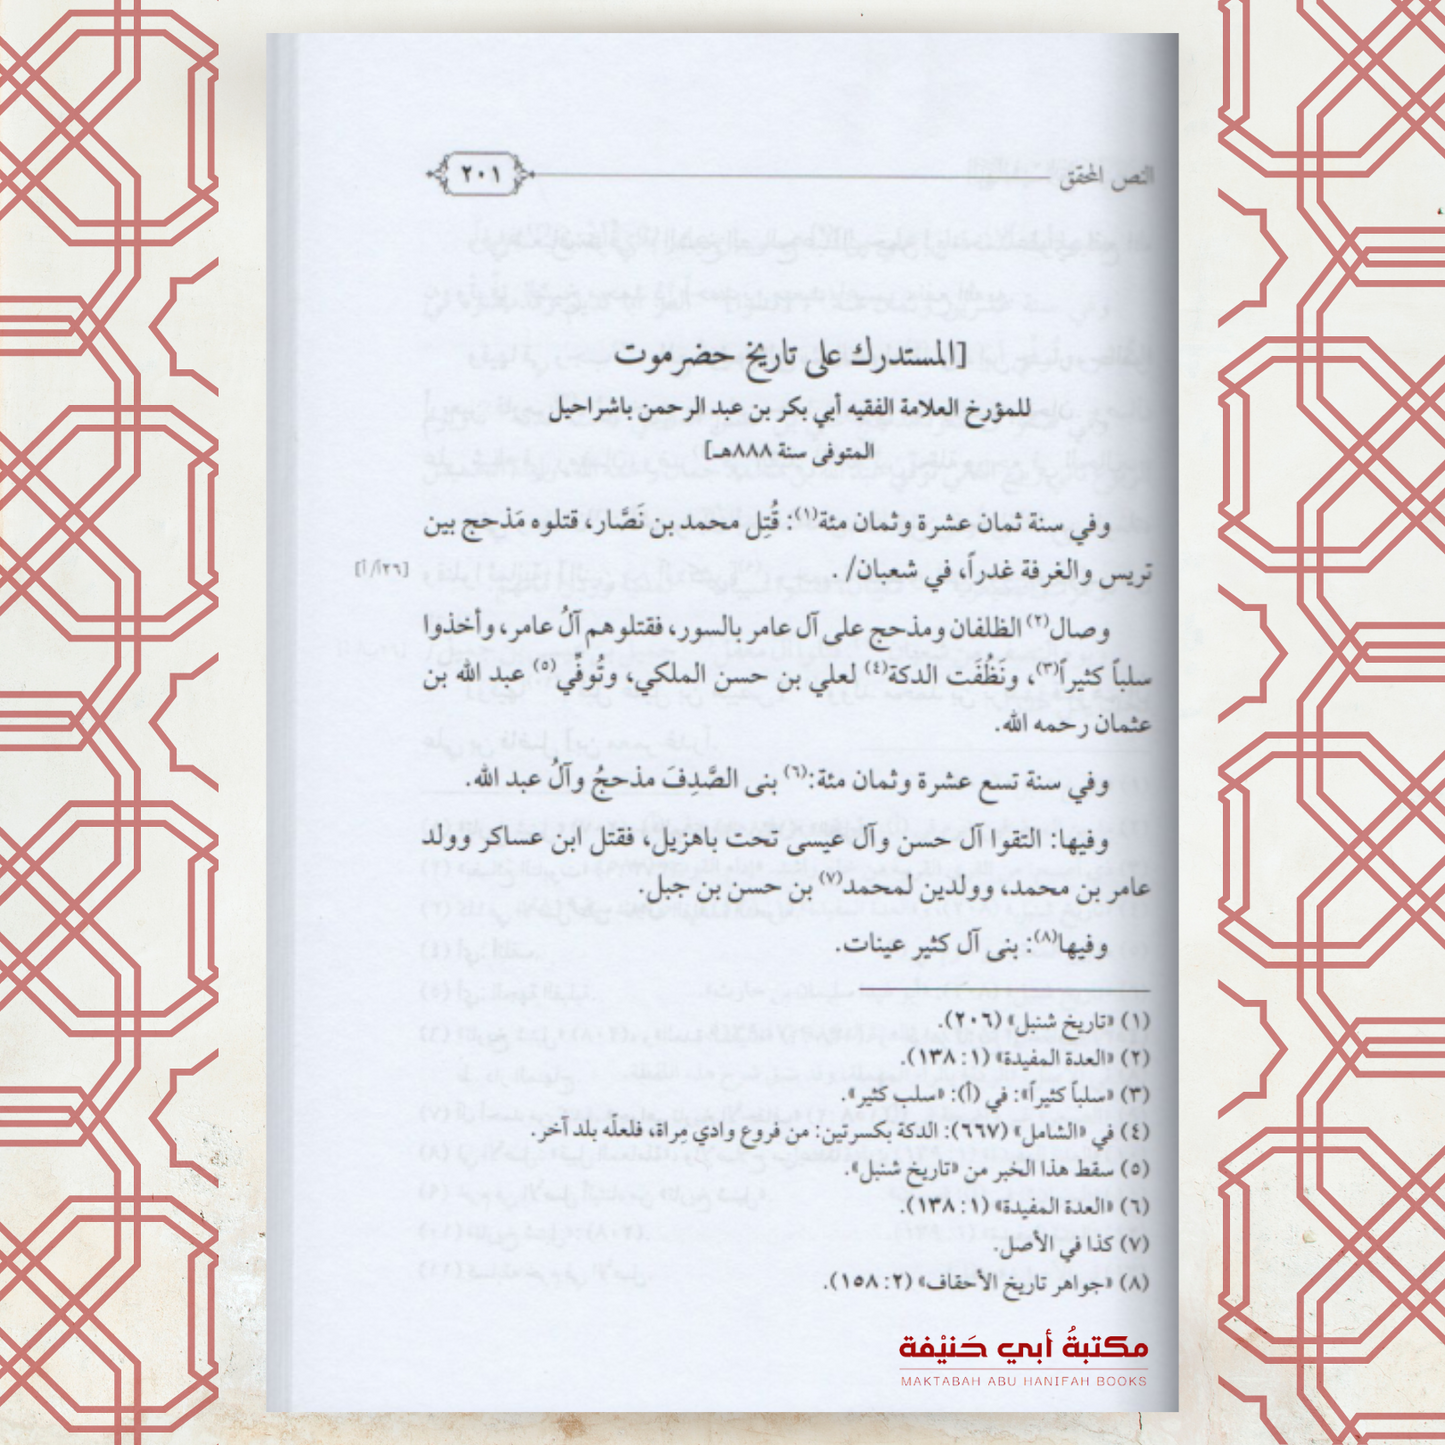 النص المحقق
٢٠١
[المستدرك على تاريخ حضرموت
للمؤرخ العلامة الفقيه أبي بكر بن عبد الرحمن باشراحيل
المتوفى سنة ٨٨٨هـ]
وفي سنة ثمان عشرة وثمان مئة(١): قُتِل محمد بن نَصَّار، قتلوه مَذحج بين
تريس والغرفة غدراً، في شعبان/ .
[٢٦أ/أ]
وصال(٢) الظلفان ومذحج على آل عامر بالسور، فقتلوهم آلُ عامر، وأخذوا
سلباً كثيراً(٣)، ونَظُفَت الدكة(٤) لعلي بن حسن الملكي، وتُوفِّي(٥) عبد الله بن
عثمان رحمه الله.
وفي سنة تسع عشرة وثمان مئة:(٦) بنى الصَّدِفَ مذحجُ وآلُ عبد الله.
وفيها: التقوا آل حسن وآل عيسى تحت باهزيل، فقتل ابن عساكر وولد
عامر بن محمد، وولدين لمحمد(٧) بن حسن بن جبل.
وفيها(٨): بنى آل كثير عينات.
(١) «تاريخ شنبل» (٢٠٦).
(٢) «العدة المفيدة» (١: ١٣٨).
(٣) «سلباً كثيراً»: في (أ): «سلب كثير».
(٤) في «الشامل» (٦٦٧): الدكة بكسرتين: من فروع وادي مِراة، فلعله بلد آخر.
(٥) سقط هذا الخبر من «تاريخ شنبل».
(٦) «العدة المفيدة» (١: ١٣٨).
(٧) كذا في الأصل.
(٨) «جواهر تاريخ الأحقاف» (٢: ١٥٨).
مكتبةُ أبي حَنيْفة
MAKTABAH ABU HANIFAH BOOKS